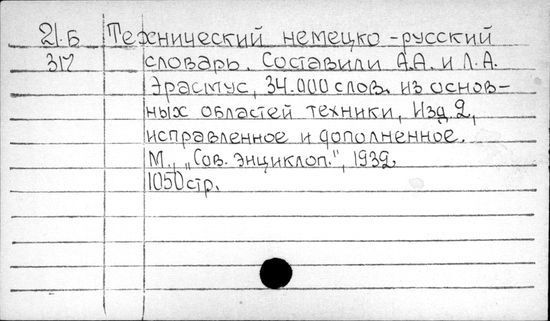 21-Б Технический немецко-русский
317 словарь. Составили А.А. и Л.А.
Эрасмус, 34.000 слов. из основ-
ных областей техники, Изд. 2,
исправленное и дополненное.
М., „Сов. энциклоп.", 1932.
1050 стр.